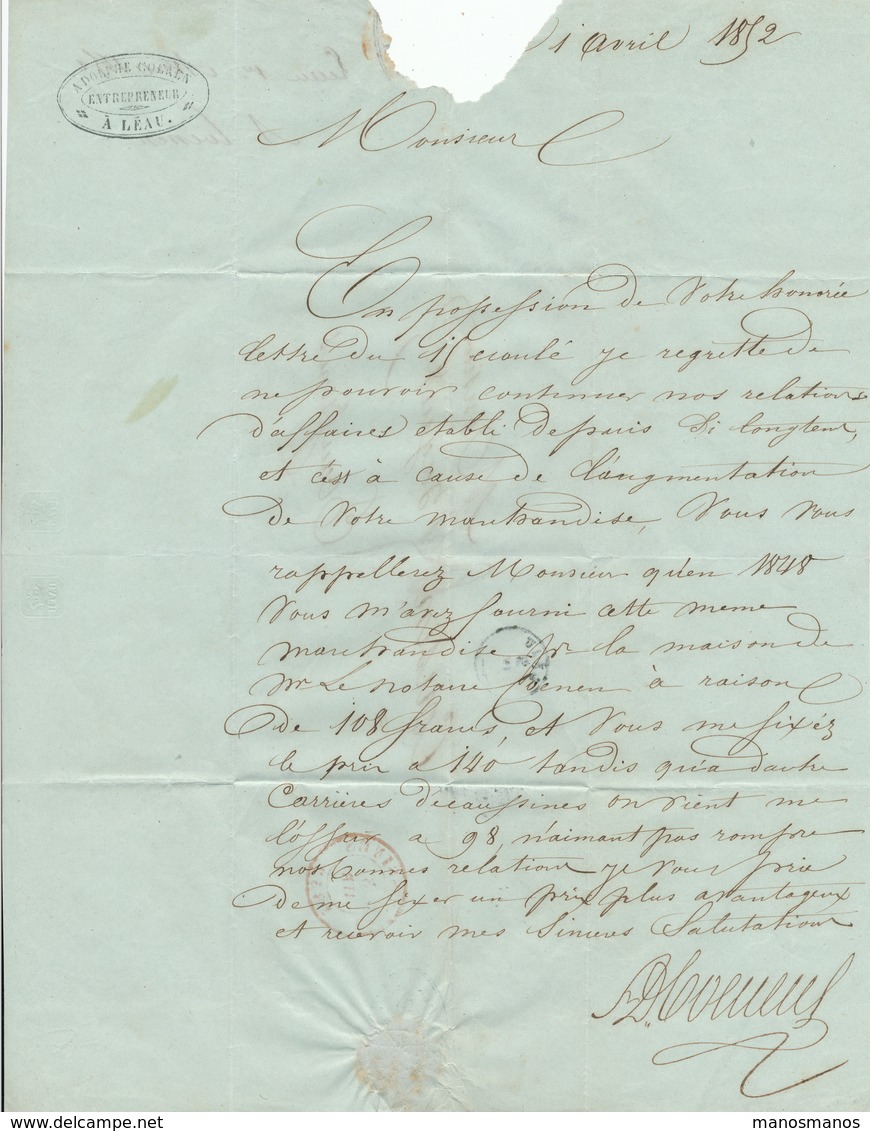 1 avril 1852
ADOLPHE COENEN
ENTREPRENEUR
À LÉAU.
Monsieur
En possession de Votre honorée
lettre du 15 écoulé je regrette de
ne pouvoir continuer nos relations
d'affaires etabli depuis Si longtems,
et c'est à cause de l'augmentation
de Votre marchandise, Vous Vous
rappellerez Monsieur qu'en 1848
Vous m'avez fourni cette meme
marchandise pr la maison de
Mr Le notaire Coenen à raison
de 108 francs, et Vous me fixéz
le prix a 140 tandis qu'a d'autre
Carrières d'écaussines on vient me
l'offrir a 98, n'aimant pas rompre
nos bonnes relation je Vous prie
de me fixer un prix plus avantageux
et recevoir mes Sinceres Salutations
AD. Coenen
manosmanos